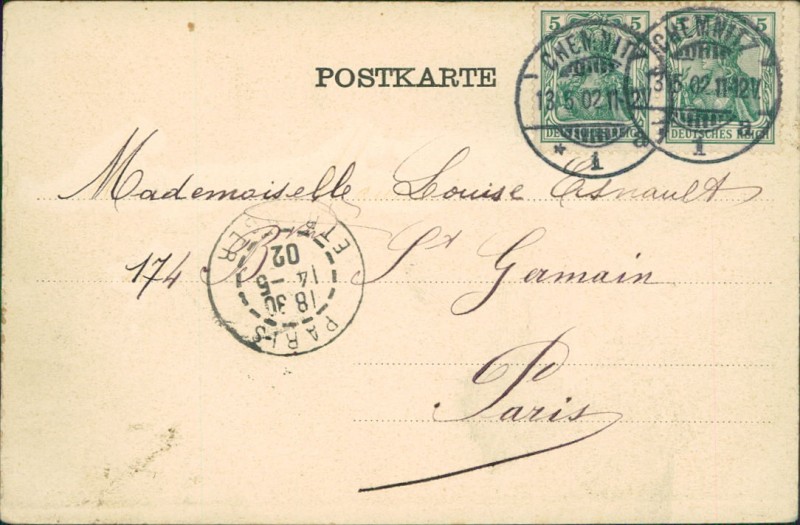 5 5 5
DEUTSCHES REICH DEUTSCHES REICH
CHEMNITZ
13.5.02.11-12V.
* 1 a
CHEMNITZ
13.5.02.11-12V.
1 a
POSTKARTE
Mademoiselle Louise Esnault
174 Bd St Germain
Paris
PARIS ETRANGER
18 30
14 - 5
02